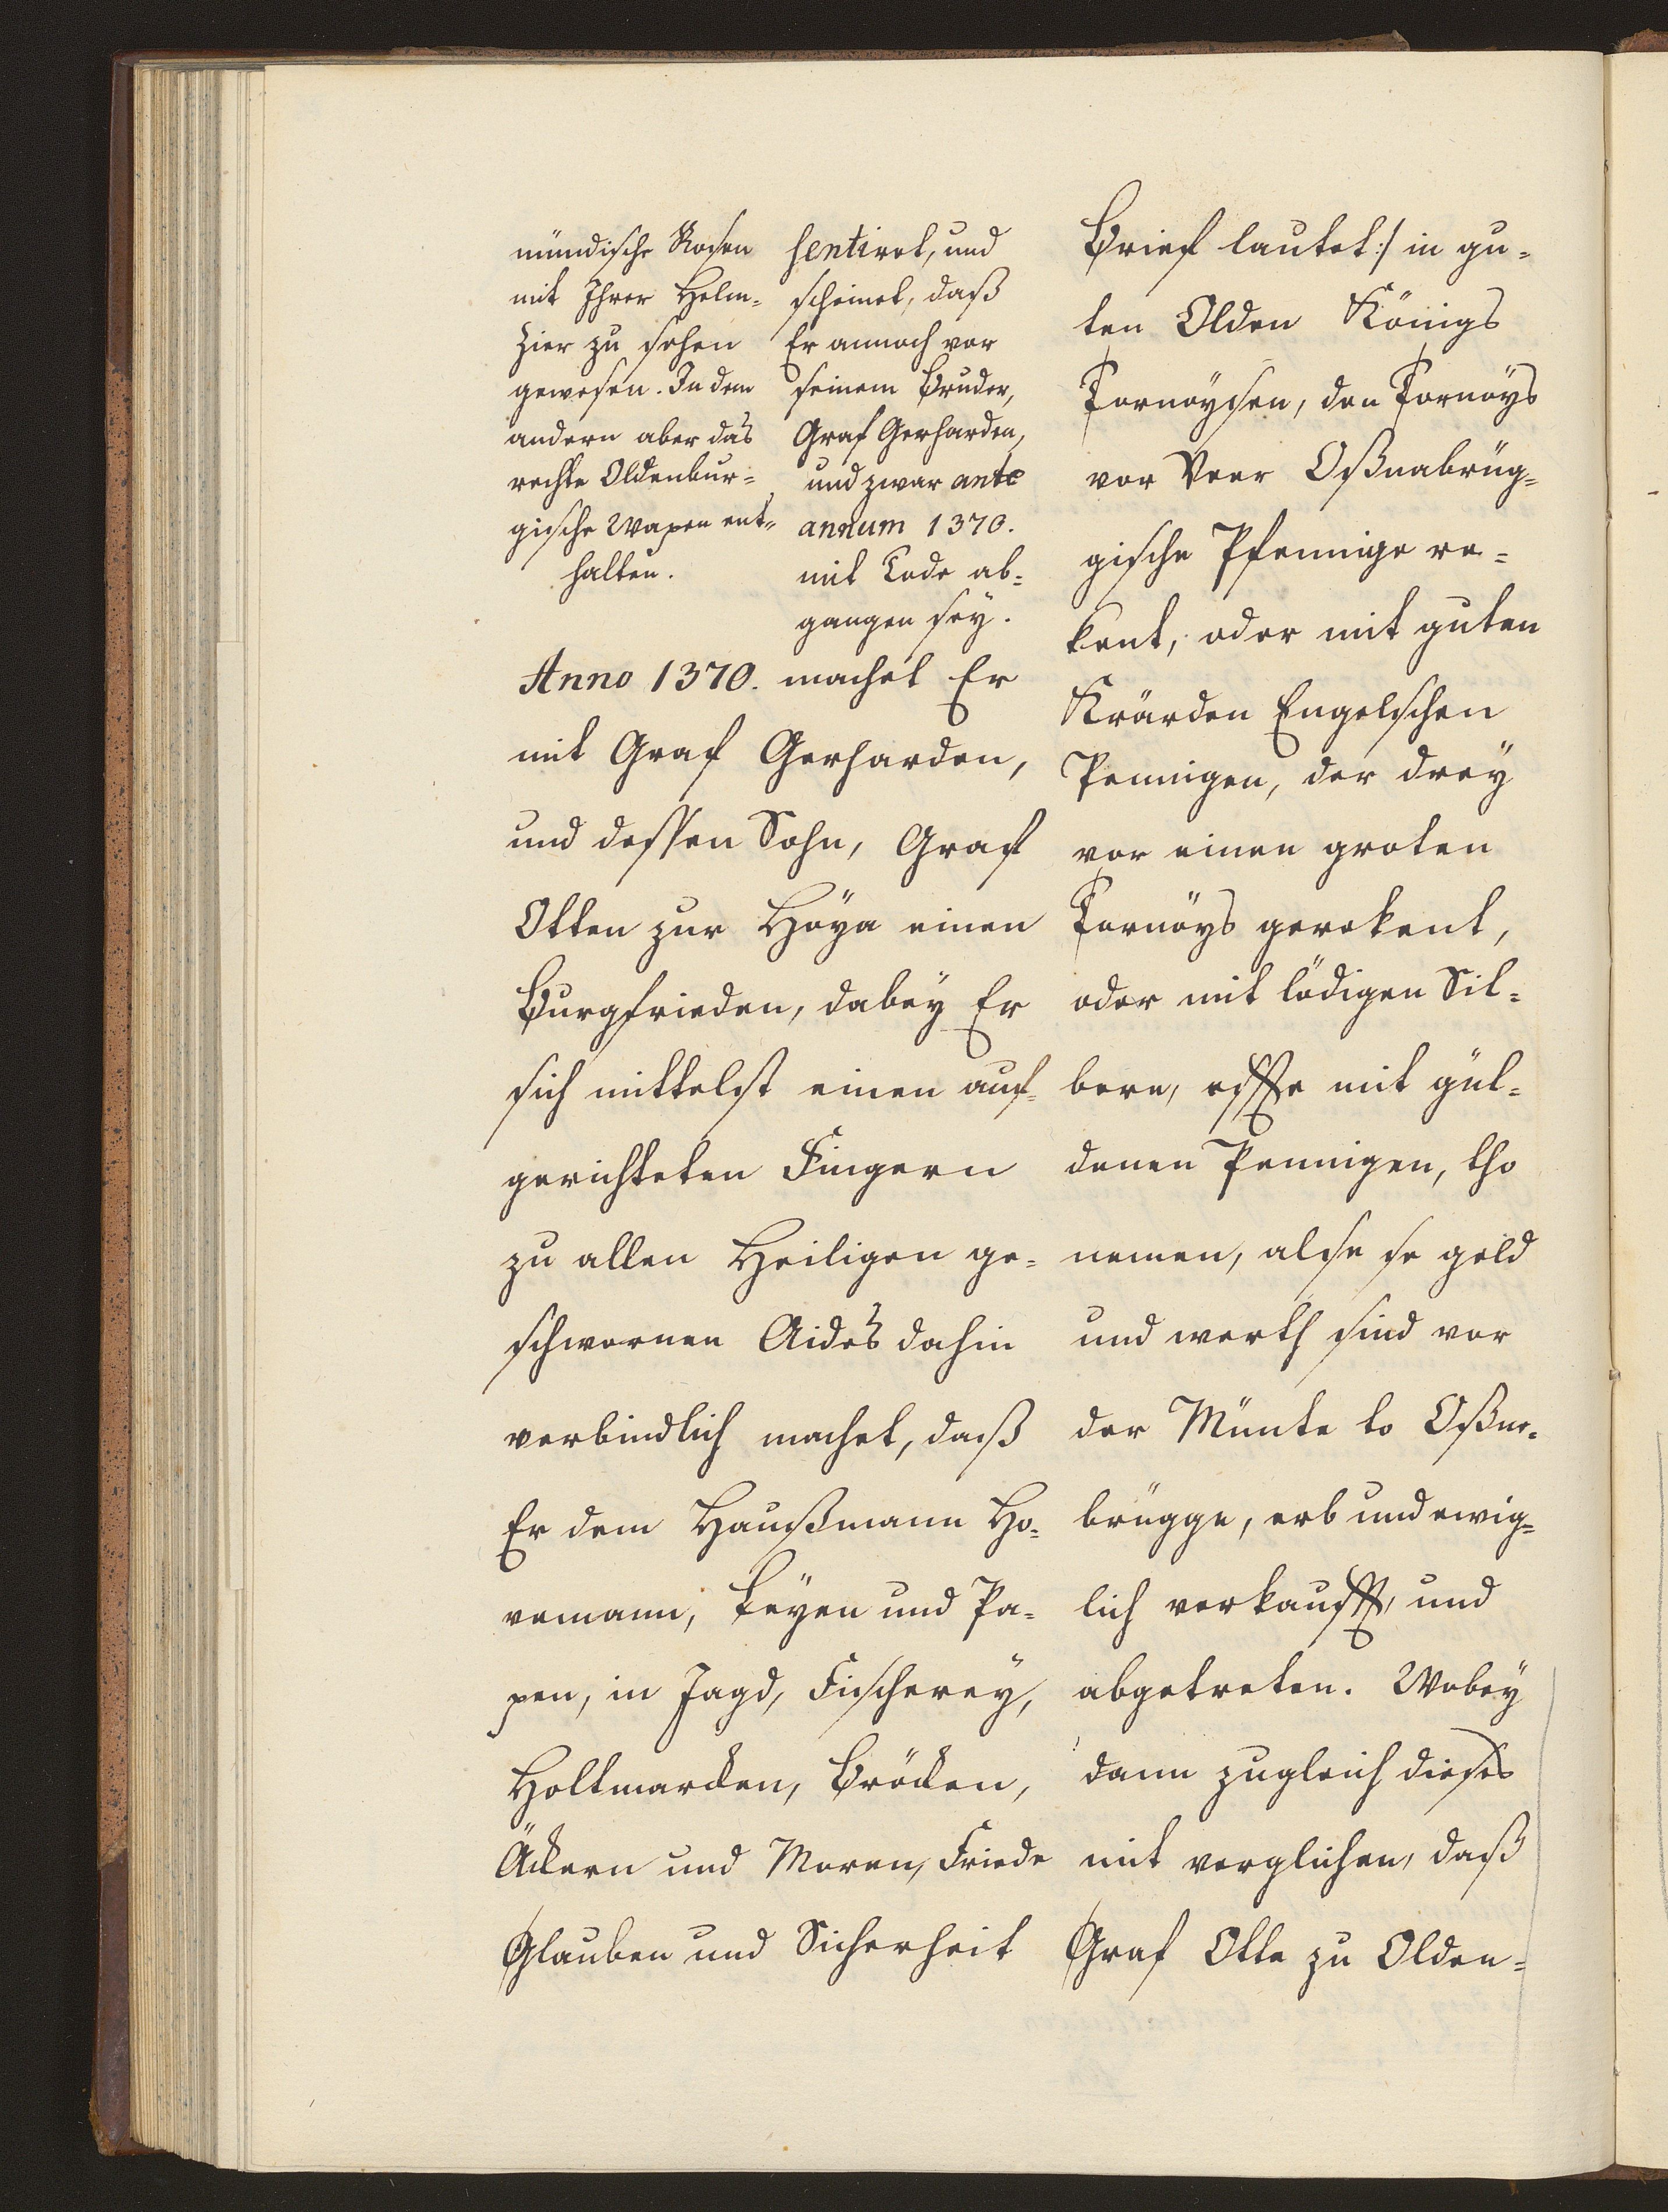 mündische Rosen
mit Ihrer Helm-
Zier zu sehen
gewesen. In dem
andern aber das
rechte Oldenbur-
gische Wapen ent-
halten.
sentiret, und
scheinet, daß
Er annoch vor
seinem Bruder,
Graf Gerharden,
und zwar ante
annum 1370.
mit Tode ab-
gangen sey.
Anno 1370. machet Er
mit Graf Gerharden,
und dessen Sohn, Graf
Otten zur Hoya einen
Burgfrieden, dabey Er
sich mittelst einen auf-
gerichteten Fingern
zu allen Heiligen ge-
schwornen Aides dahin
verbindlich machet, daß
Er dem Haußmann Ho-
vemann, Leyen und Pa-
pen, in Jagd, Fischerey,
Holtmarcken, Bröcken,
Äckern und Moren, Friede
Glauben und Sicherheit
Brief lautet :/ in gu-
ten Olden Königs
Tornöysen, den Tornöys
vor Veer Oßnabrüg-
gische Pfennige re-
kent, oder mit guten
Engelschen
Pennigen, der drey
vor einen groten
Tornöys gerekent,
oder mit lödigen Sil-
bern, efffte mit gül-
denen Pennigen, tho
nemen, alse se geld
und werth sind vor
der Münte to Oßne-
brügge, erb und ewig-
lich verkaufft, und
abgetreten. Wobey
dann zugleich dieses
mit verglichen, daß
Graf Otte zu Olden-